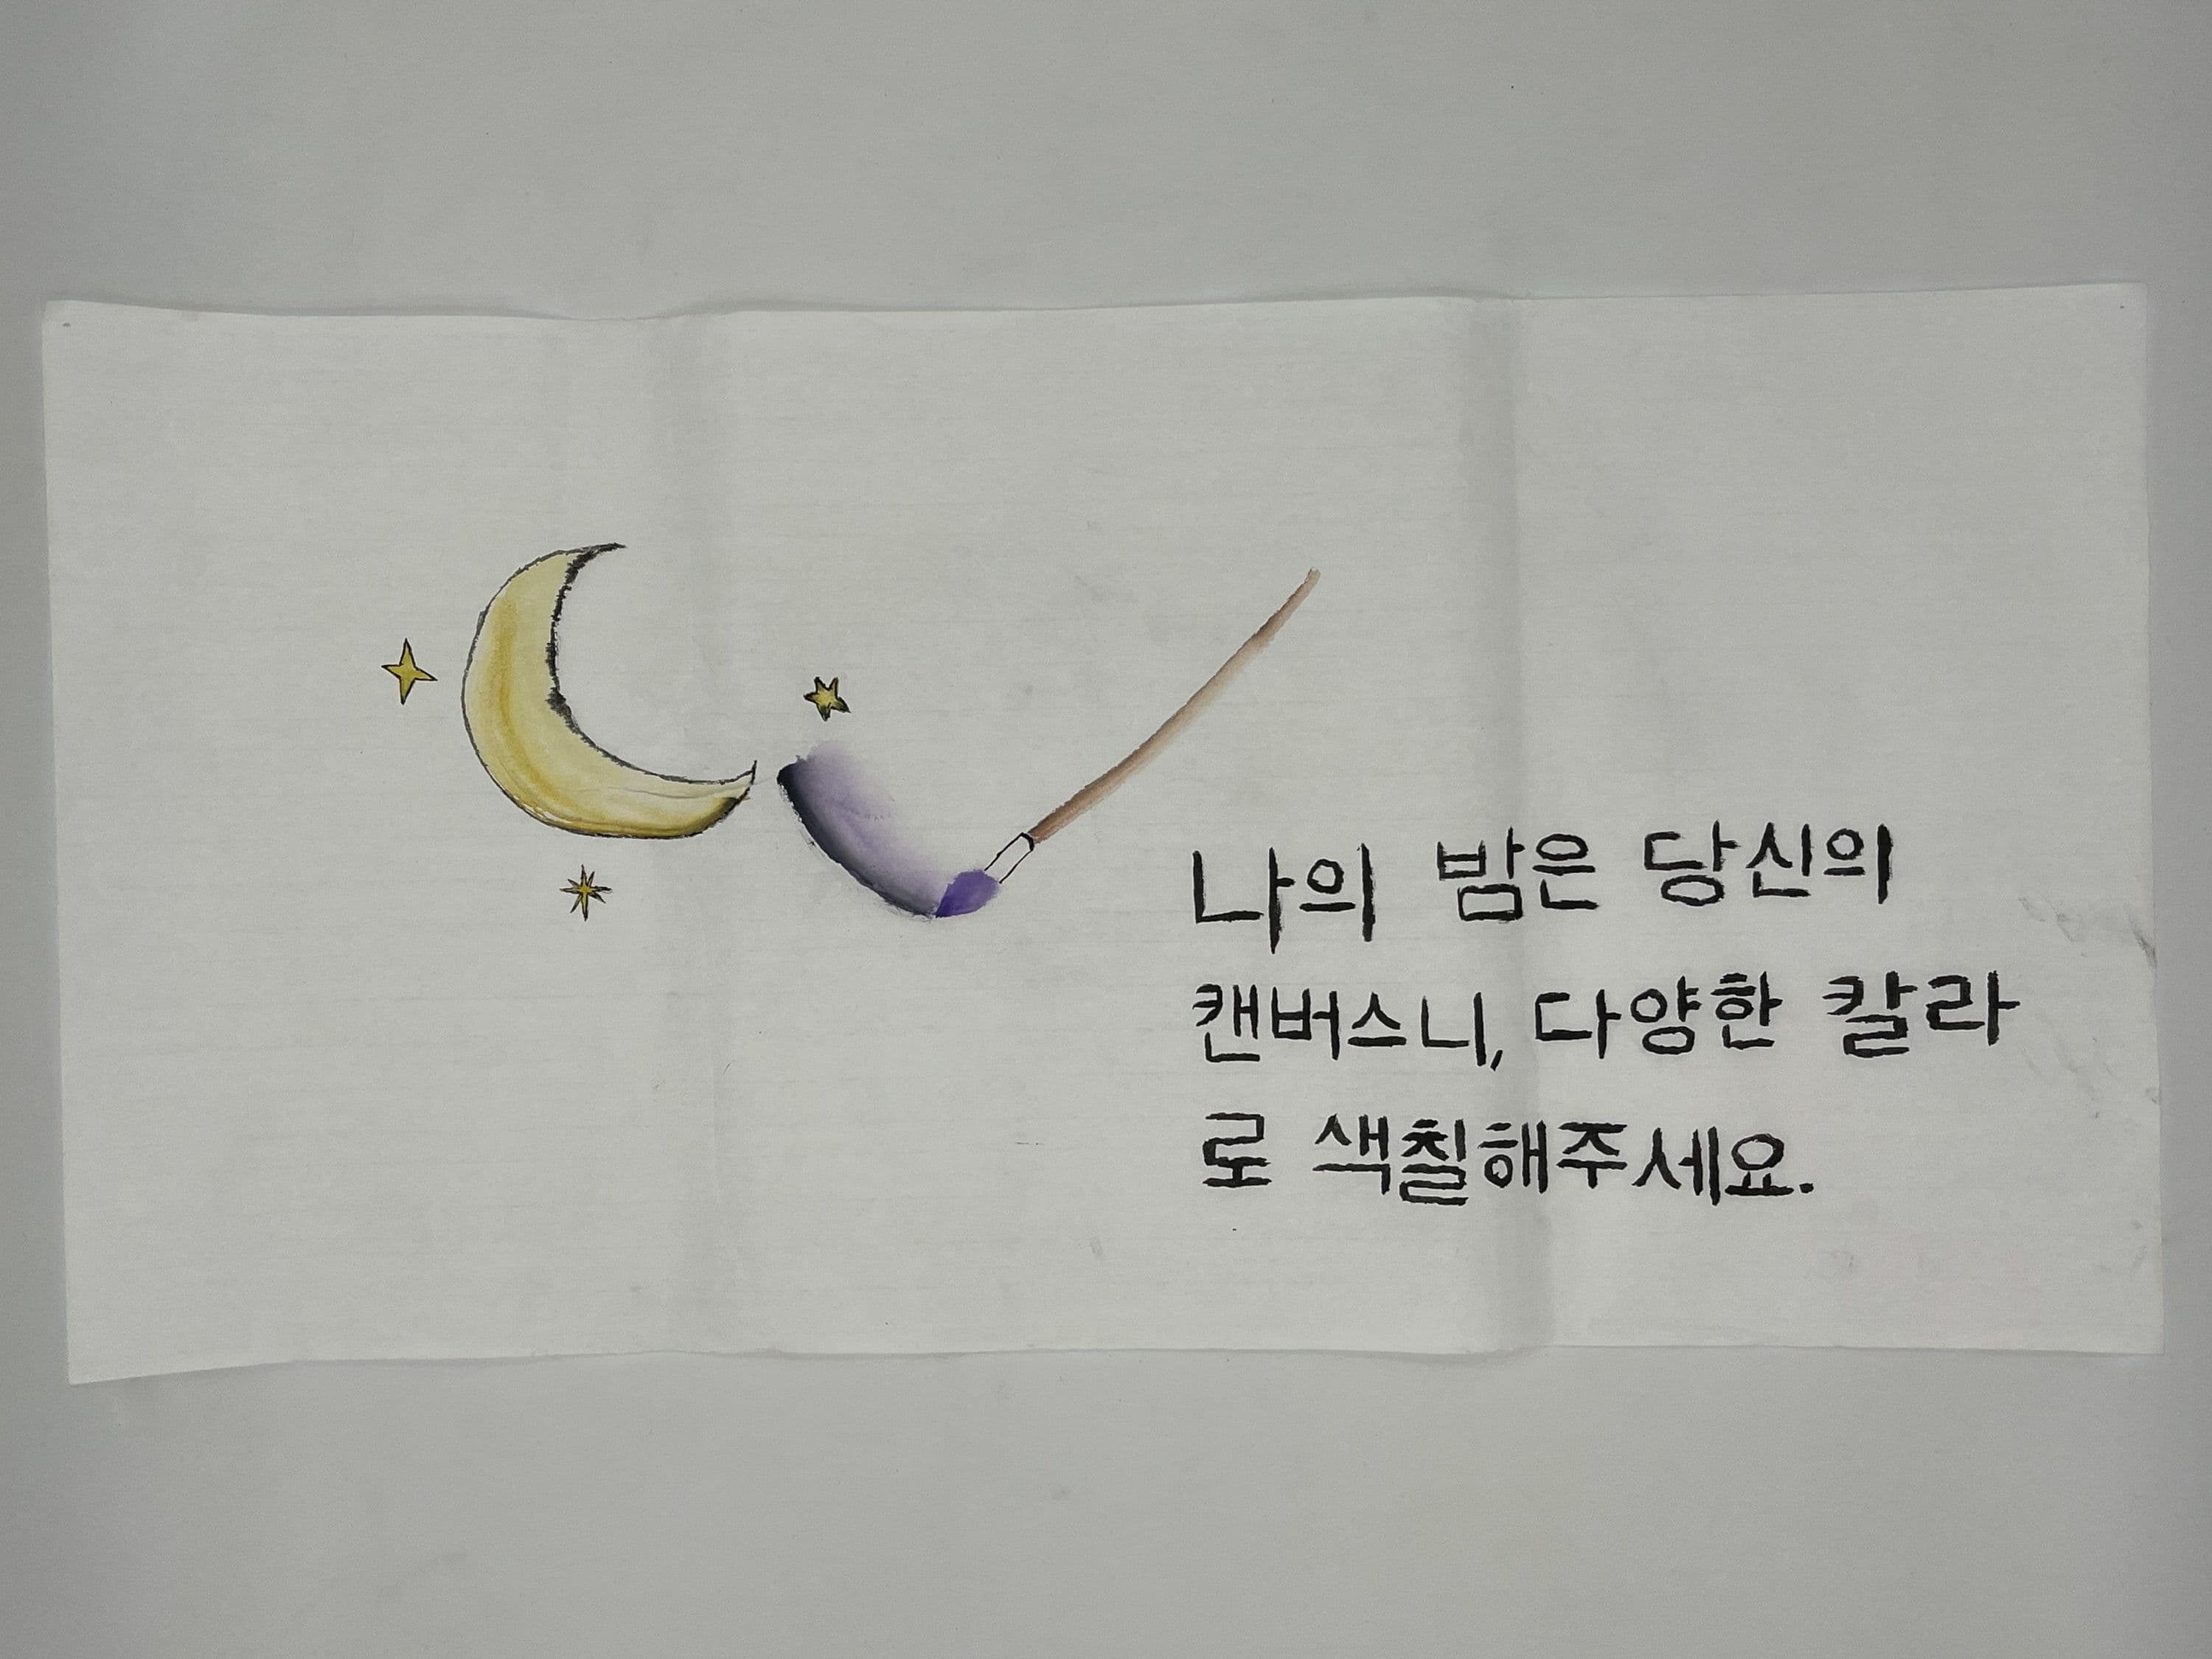 나의 밤은 당신의
캔버스니, 다양한 칼라
로 색칠해주세요.